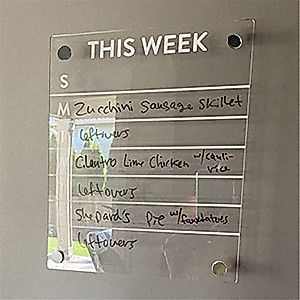 THIS WEEK
S
M Zucchini Sausage Skillet
leftovers
Cilantro Lime Chicken w/cauli-rice
leftovers
Shepard's Pie
leftovers